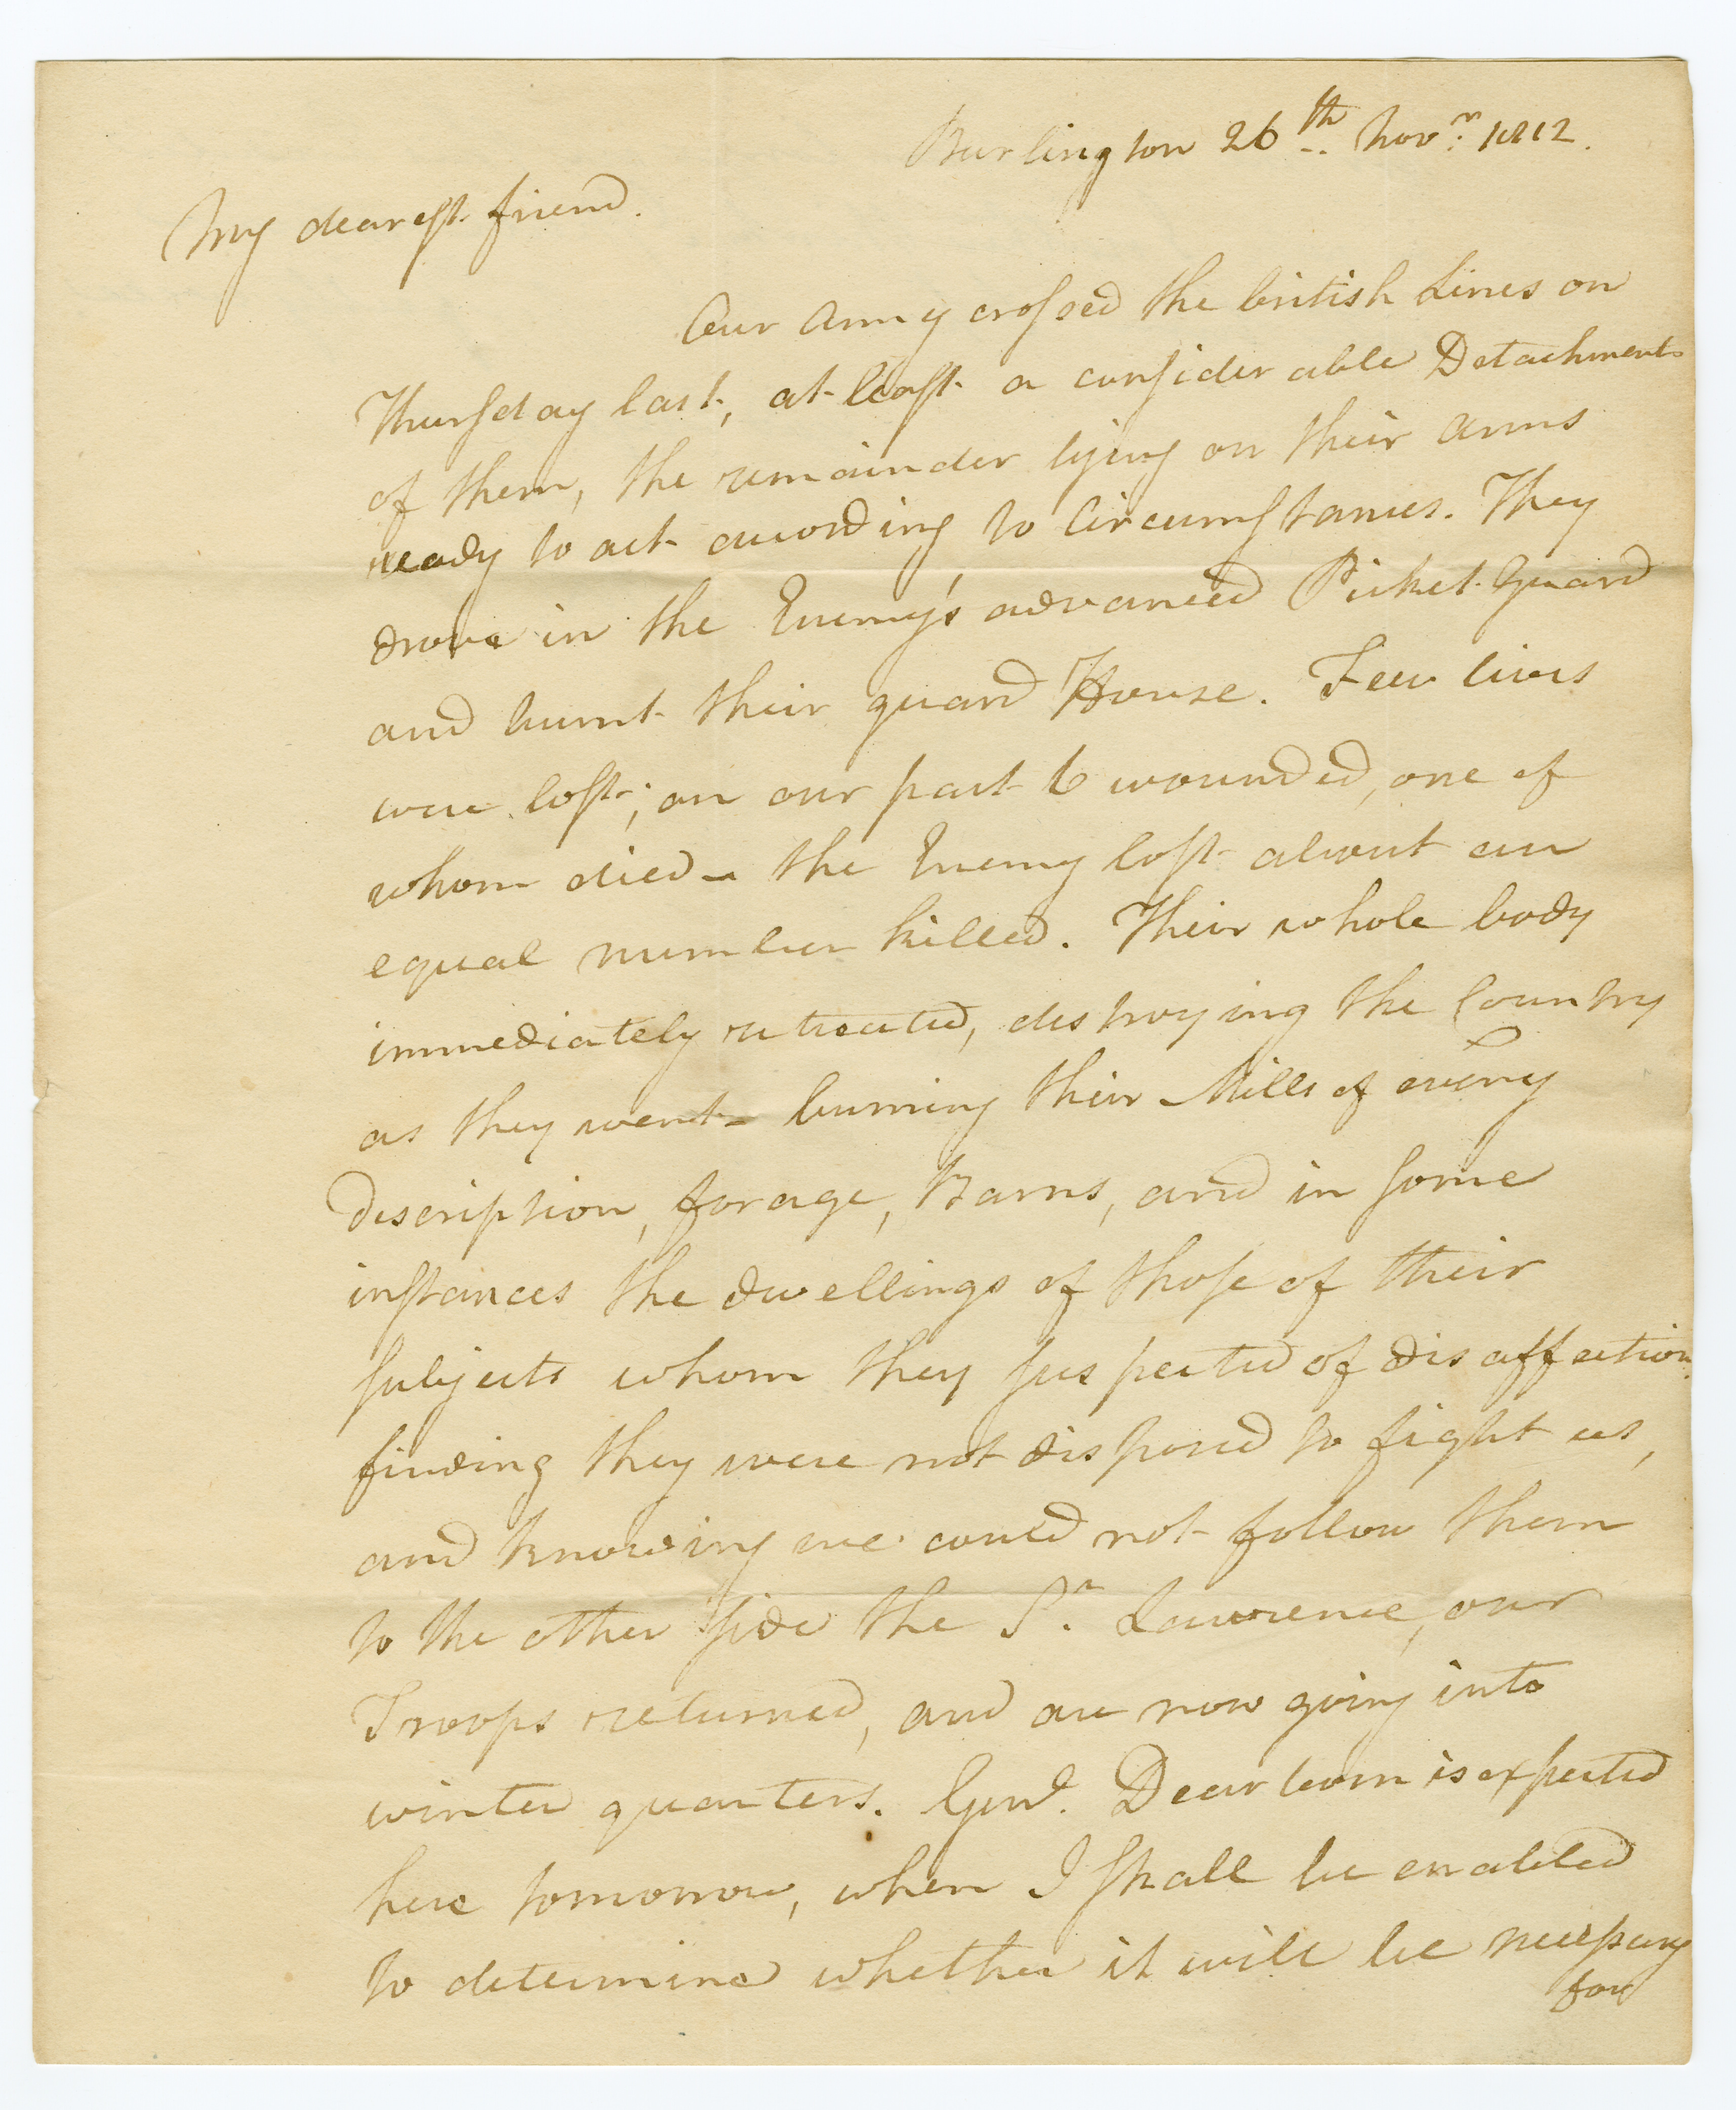 Burlington 26th Novr 1812.
My dearest friend.
Our Army crossed the british Lines on
Thursday last, at least a considerable Detachment
of them, the remainder lying on their arms
ready to act according to Circumstances. They
drove in the Enemy's advanced Picket Guard
and burnt their guard House. Few lives
were lost; on our part 6 wounded, one of
whom died – the Enemy lost about an
equal number killed. Their whole body
immediately retreated, destroying the Country
as they went – burning their Mills of every
description, forage, Barns, and in some
instances the dwellings of those of their
subjects whom they suspected of disaffection.
finding they were not disposed to fight us,
and knowing we could not follow them
to the other side the St. Lawrence, our
Troops returned, and are now going into
winter quarters. Genl. Dearborn is expected
here tomorrow, when I shall be enabled
to determine whether it will be necessary
for